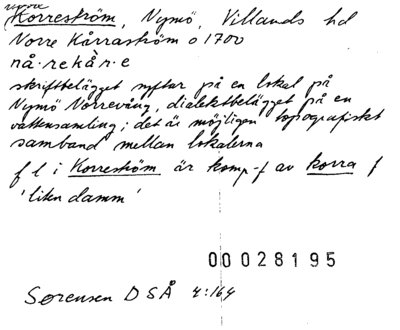 norre
Korreström, Nymö, Villands hd
Norre Kårraström o 1700
nå·rekår·e
skriftbelägget syftar på en lokal på
Nymö Norrevång, dialektbelägget på en
vattensamling; det är möjligen topografiskt
samband mellan lokalerna
f l i Korreström är komp-f av korra f
'liten damm'
00028195
Sørensen DSÅ 4:164